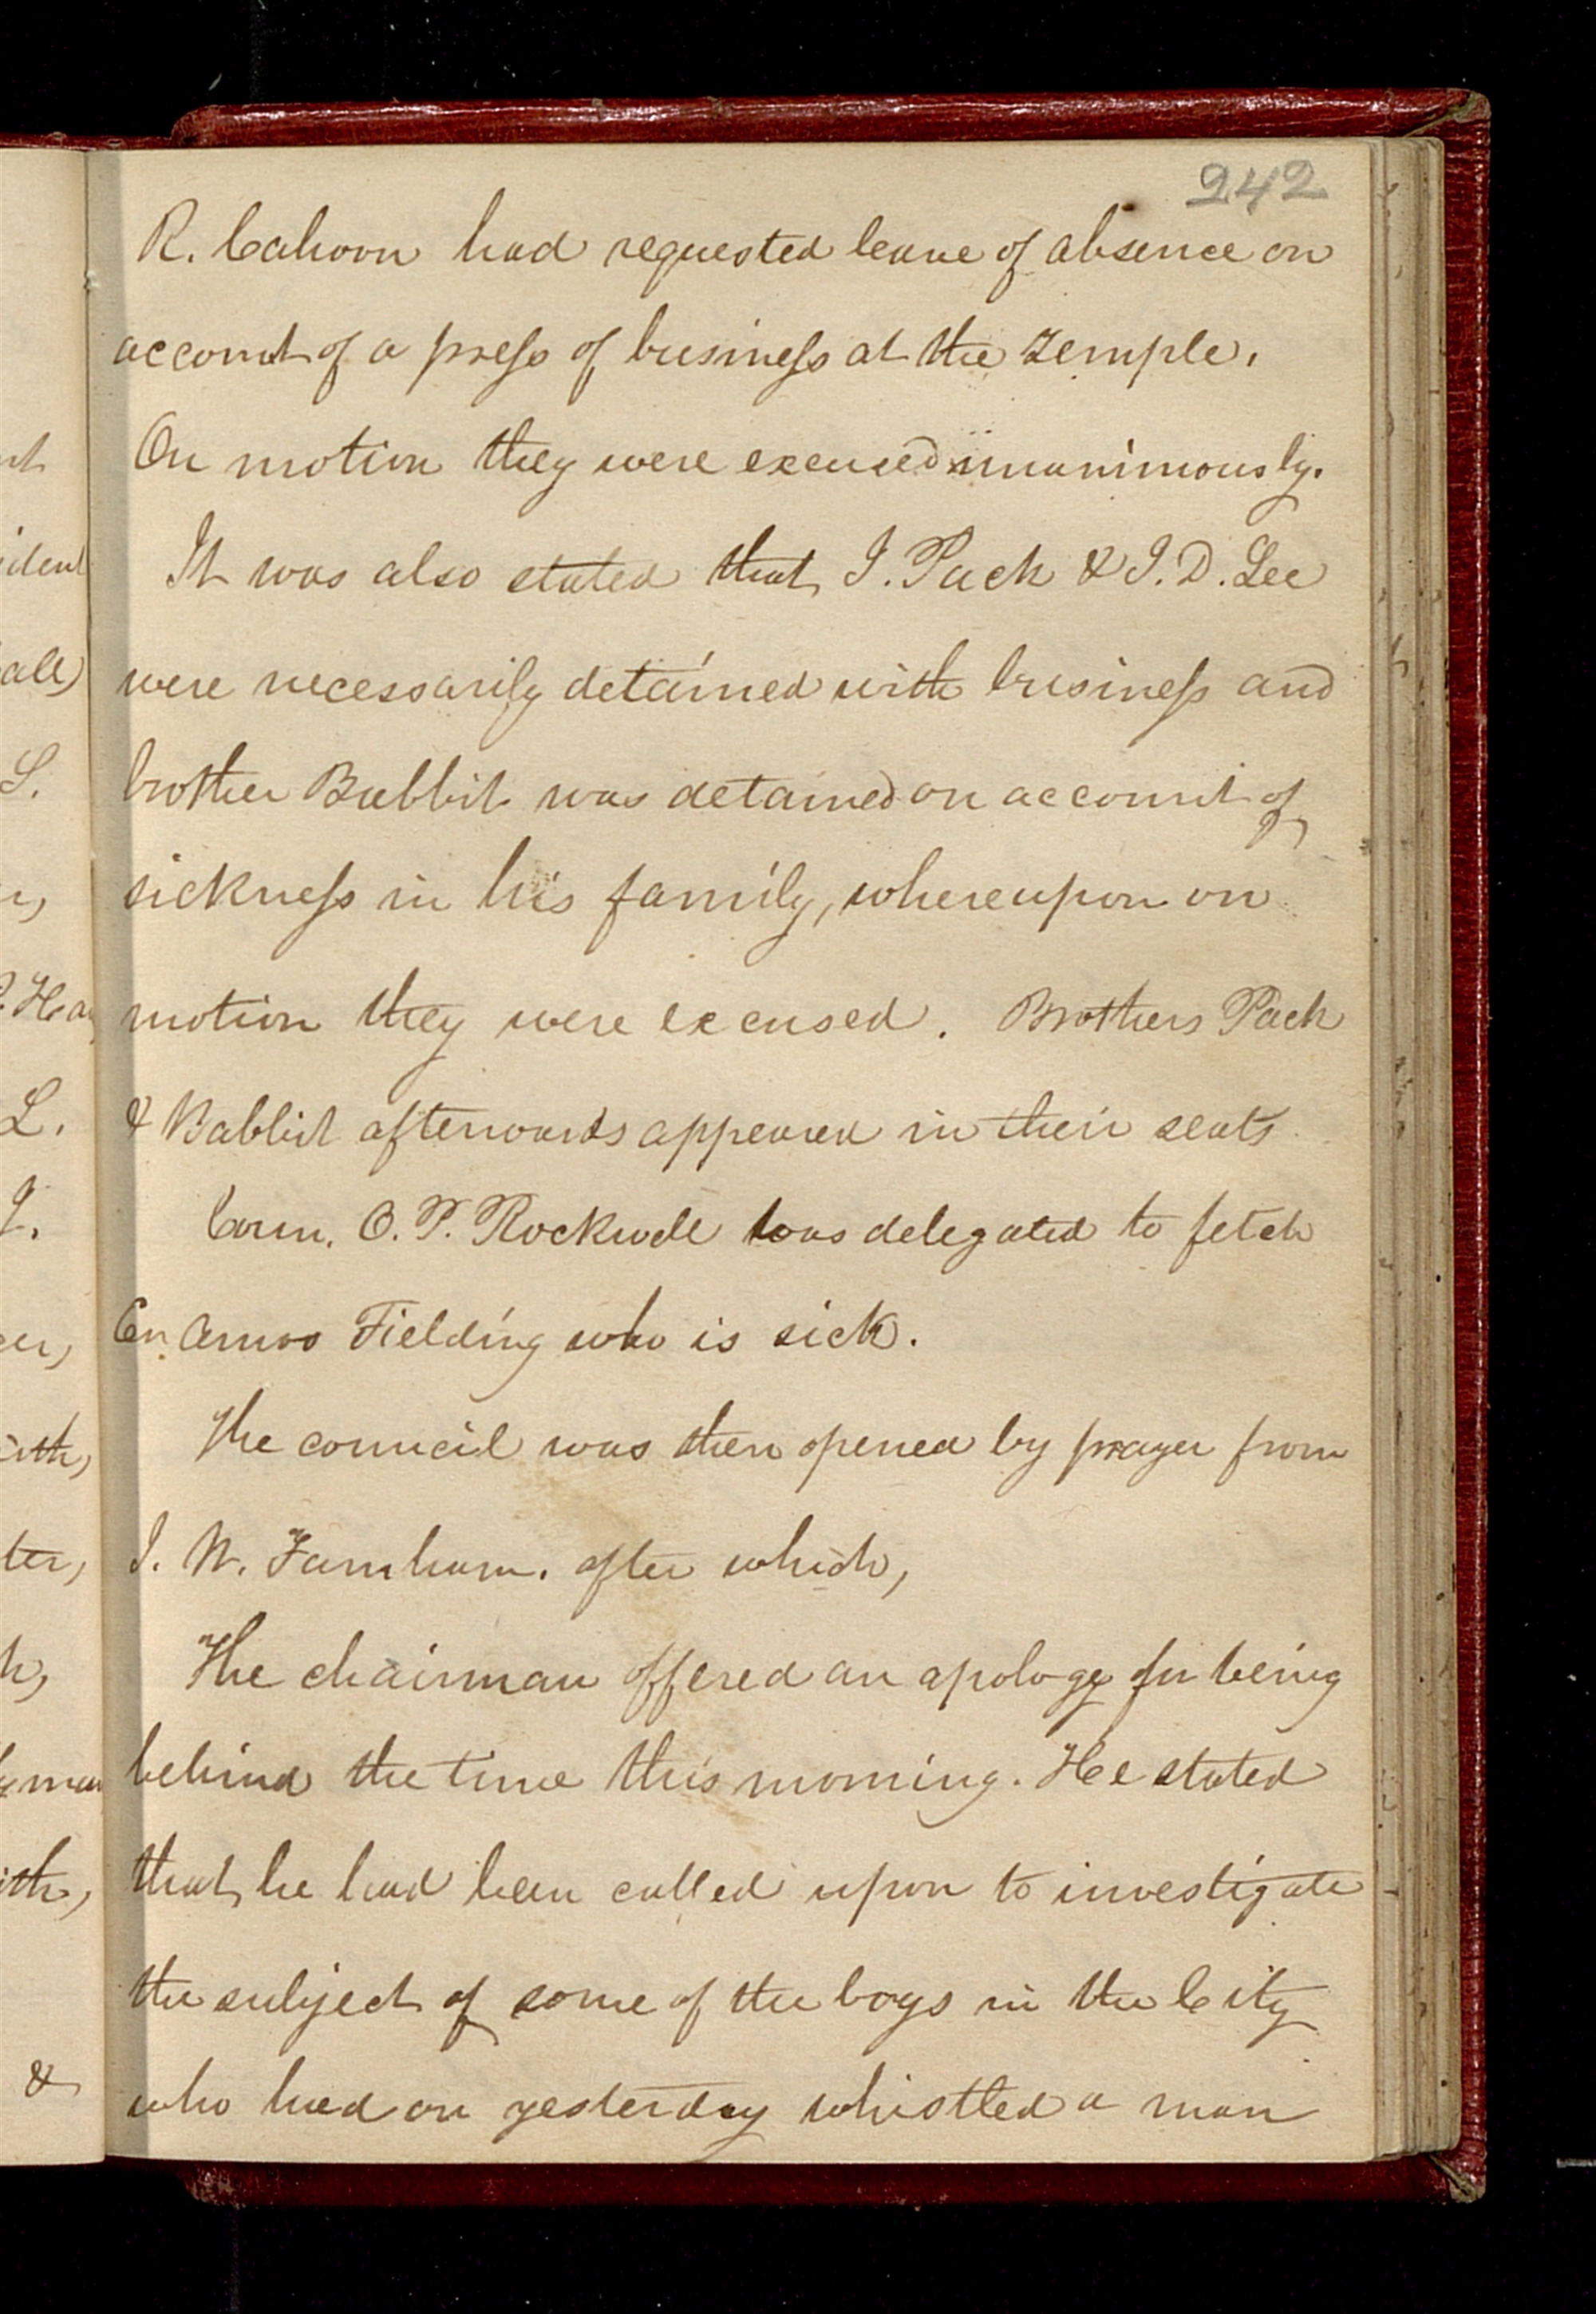 242
R. Cahoon had requested leave of absence on
account of a press of business at the Temple.
On motion they were excused unanimously.
It was also stated that J. Pack & J. D. Lee
were necessarily detained with business and
brother Babbit was detained on account of
sickness in his family, whereupon on
motion they were excused. Brothers Pack
& Babbit afterwards appeared in their seats
Coun. O. P. Rockwell was delegated to fetch
Cn. Amos Fielding who is sick.
The council was then opened by prayer from
J. W. Farnham. after which,
The chairman offered an apology for being
behind the time this morning. He stated
that he had been called upon to investigate
the subject of some of the boys in the City
who had on yesterday whistled a man